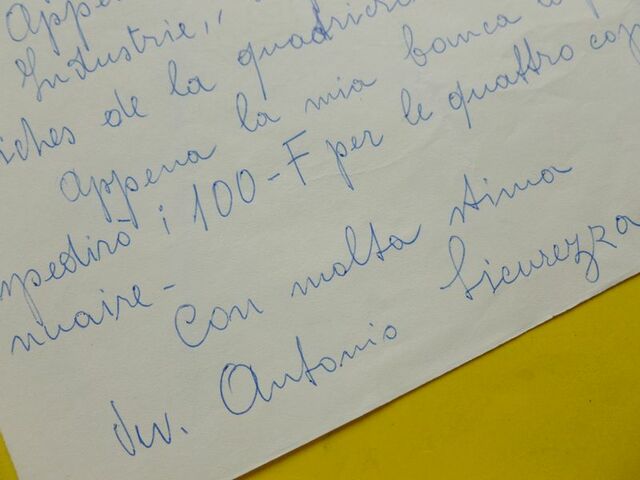 Appe
Industrie,,
iches de la quadricro
Appena la mia banca a p
mpedirò i 100-F per le quattro cop
nnuaire-
Con molta stima
Antonio Sicurezza